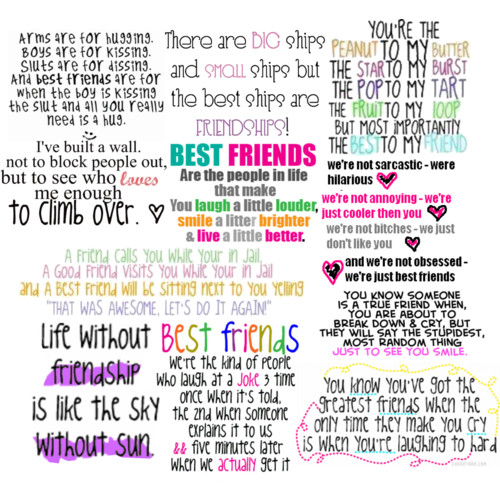 Arms are for hugging.
Boys are for kissing.
Sluts are for dissing.
And best friends are for
when the boy is kissing
the slut and all you really
need is a hug.
There are BIG ships
and SMALL ships but
the best ships are
FRIENDSHIPS!
YOU'RE THE
PEANUT TO MY BUTTER
THE STAR TO MY BURST
THE POP TO MY TART
THE FRUIT TO MY LOOP
BUT MOST IMPORTANTLY
THE BEST TO MY FRIEND
I've built a wall.
not to block people out,
but to see who loves
me enough
to climb over.
BEST FRIENDS
Are the people in life
that make
You laugh a little louder,
smile a litter brighter
& live a little better.
we're not sarcastic - were
hilarious
we're not annoying - we're
just cooler then you
we're not bitches - we just
don't like you
and we're not obsessed -
we're just best friends
A Friend calls you while your in jail,
A Good Friend visits you while your in jail
and A Best Friend will be sitting next to you yelling
"THAT WAS AWESOME, LET'S DO IT AGAIN!"
YOU KNOW SOMEONE
IS A TRUE FRIEND WHEN,
YOU ARE ABOUT TO
BREAK DOWN & CRY, BUT
THEY WILL SAY THE STUPIDEST,
MOST RANDOM THING
JUST TO SEE YOU SMILE.
Life without
friendship
is like the sky
without sun.
Best friends
We're the kind of people
who laugh at a joke 3 time
once when it's told,
the 2nd when someone
explains it to us
&& five minutes later
when we actually get it
You know you've got the
greatest friends when the
only time they make you cry
is when you're laughing to hard